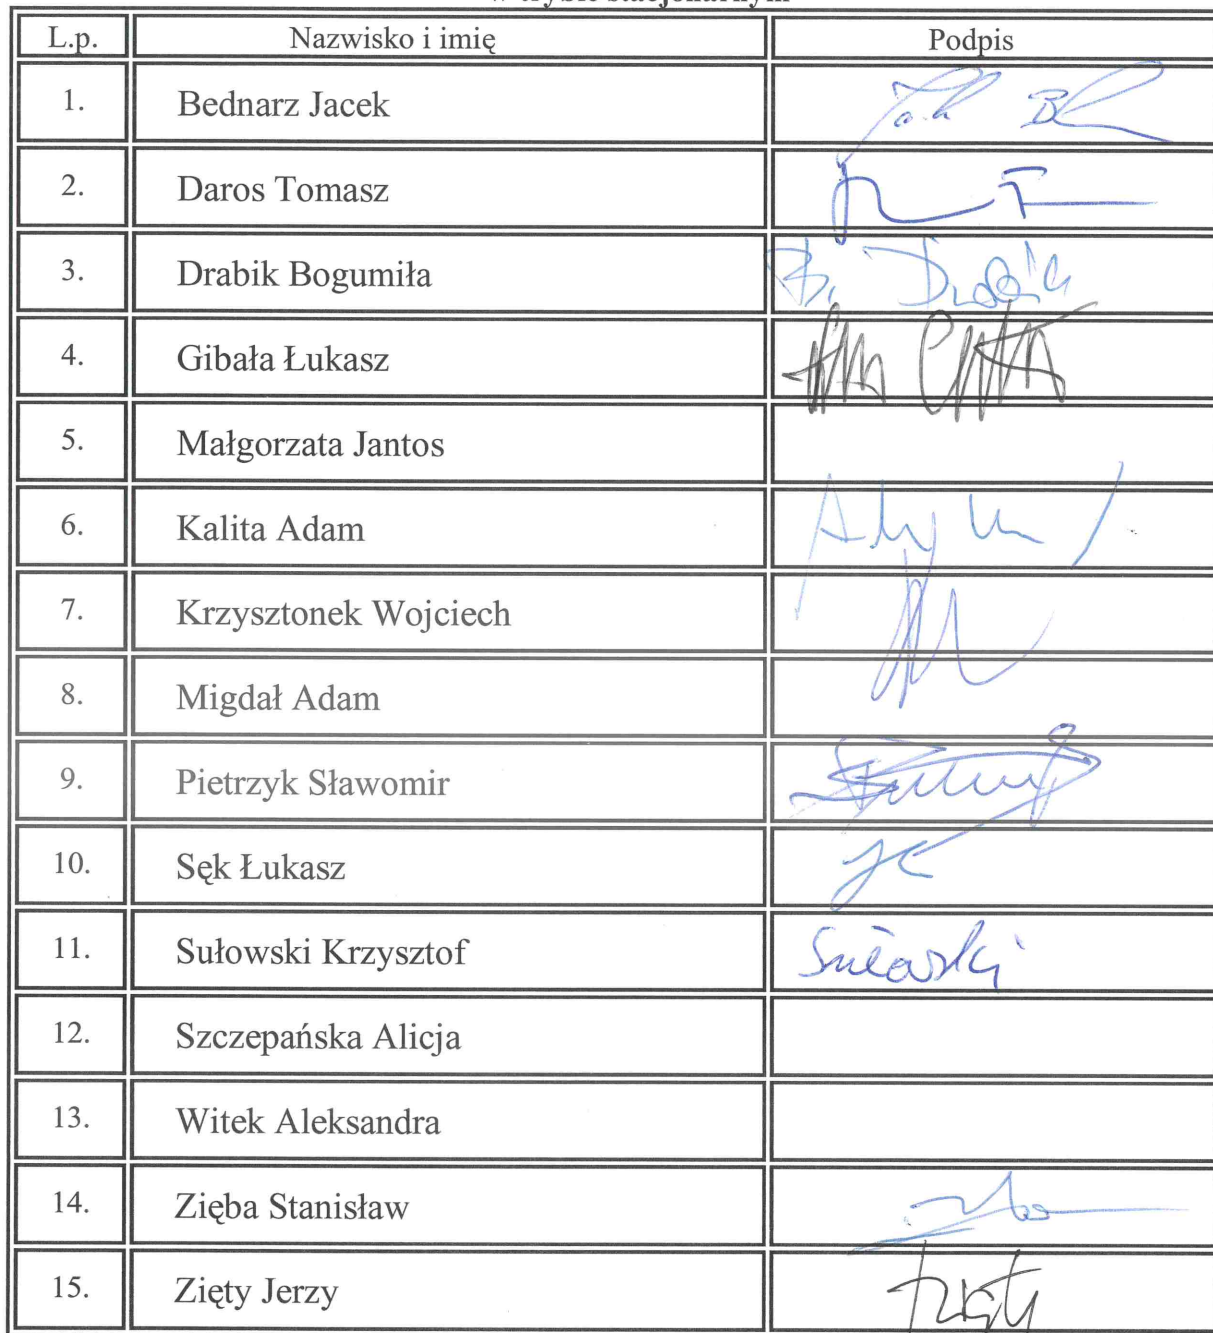 w trybie stacjonarnym
L.p. Nazwisko i imię Podpis
1. Bednarz Jacek
2. Daros Tomasz
3. Drabik Bogumiła B. Drabik
4. Gibała Łukasz
5. Małgorzata Jantos
6. Kalita Adam
7. Krzysztonek Wojciech
8. Migdał Adam
9. Pietrzyk Sławomir
10. Sęk Łukasz
11. Sułowski Krzysztof Sułowski
12. Szczepańska Alicja
13. Witek Aleksandra
14. Zięba Stanisław
15. Zięty Jerzy Zięty